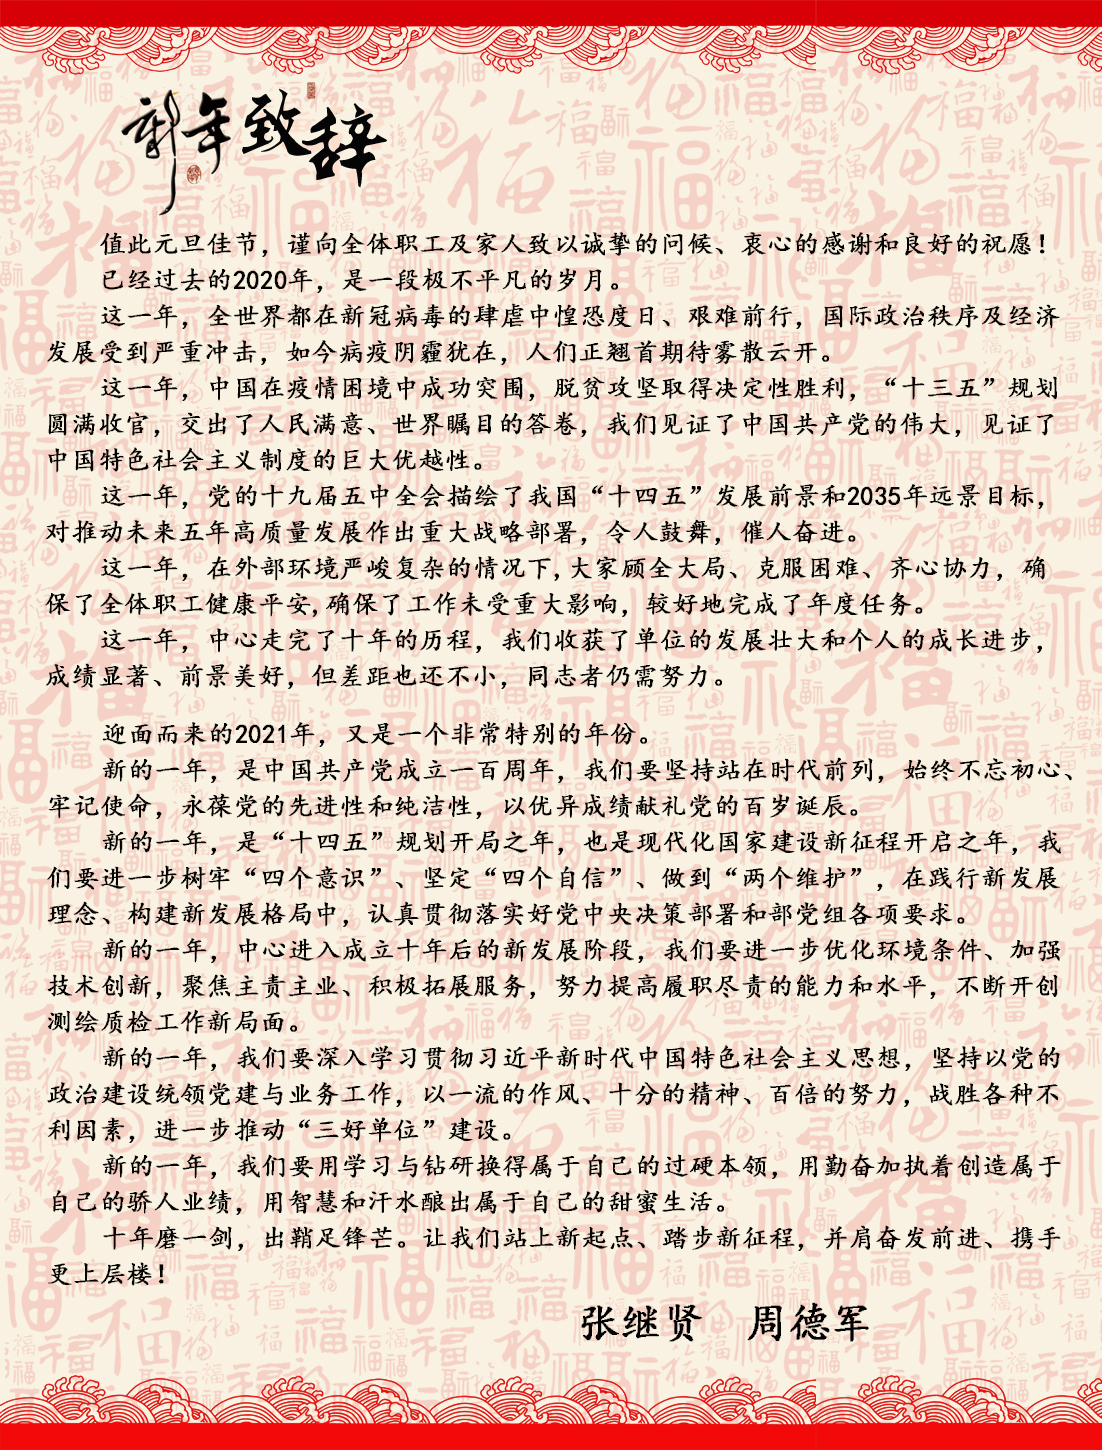 新年致辞
值此元旦佳节，谨向全体职工及家人致以诚挚的问候、衷心的感谢和良好的祝愿！
已经过去的2020年，是一段极不平凡的岁月。
这一年，全世界都在新冠病毒的肆虐中惶恐度日、艰难前行，国际政治秩序及经济
发展受到严重冲击，如今病疫阴霾犹在，人们正翘首期待雾散云开。
这一年，中国在疫情困境中成功突围，脱贫攻坚取得决定性胜利，“十三五”规划
圆满收官，交出了人民满意、世界瞩目的答卷，我们见证了中国共产党的伟大，见证了
中国特色社会主义制度的巨大优越性。
这一年，党的十九届五中全会描绘了我国“十四五”发展前景和2035年远景目标，
对推动未来五年高质量发展作出重大战略部署，令人鼓舞，催人奋进。
这一年，在外部环境严峻复杂的情况下,大家顾全大局、克服困难、齐心协力，确
保了全体职工健康平安,确保了工作未受重大影响，较好地完成了年度任务。
这一年，中心走完了十年的历程，我们收获了单位的发展壮大和个人的成长进步，
成绩显著、前景美好，但差距也还不小，同志者仍需努力。
迎面而来的2021年，又是一个非常特别的年份。
新的一年，是中国共产党成立一百周年，我们要坚持站在时代前列，始终不忘初心、
牢记使命，永葆党的先进性和纯洁性，以优异成绩献礼党的百岁诞辰。
新的一年，是“十四五”规划开局之年，也是现代化国家建设新征程开启之年，我
们要进一步树牢“四个意识”、坚定“四个自信”、做到“两个维护”，在践行新发展
理念、构建新发展格局中，认真贯彻落实好党中央决策部署和部党组各项要求。
新的一年，中心进入成立十年后的新发展阶段，我们要进一步优化环境条件、加强
技术创新，聚焦主责主业、积极拓展服务，努力提高履职尽责的能力和水平，不断开创
测绘质检工作新局面。
新的一年，我们要深入学习贯彻习近平新时代中国特色社会主义思想，坚持以党的
政治建设统领党建与业务工作，以一流的作风、十分的精神、百倍的努力，战胜各种不
利因素，进一步推动“三好单位”建设。
新的一年，我们要用学习与钻研换得属于自己的过硬本领，用勤奋加执着创造属于
自己的骄人业绩，用智慧和汗水酿出属于自己的甜蜜生活。
十年磨一剑，出鞘足锋芒。让我们站上新起点、踏步新征程，并肩奋发前进、携手
更上层楼！
张继贤　周德军